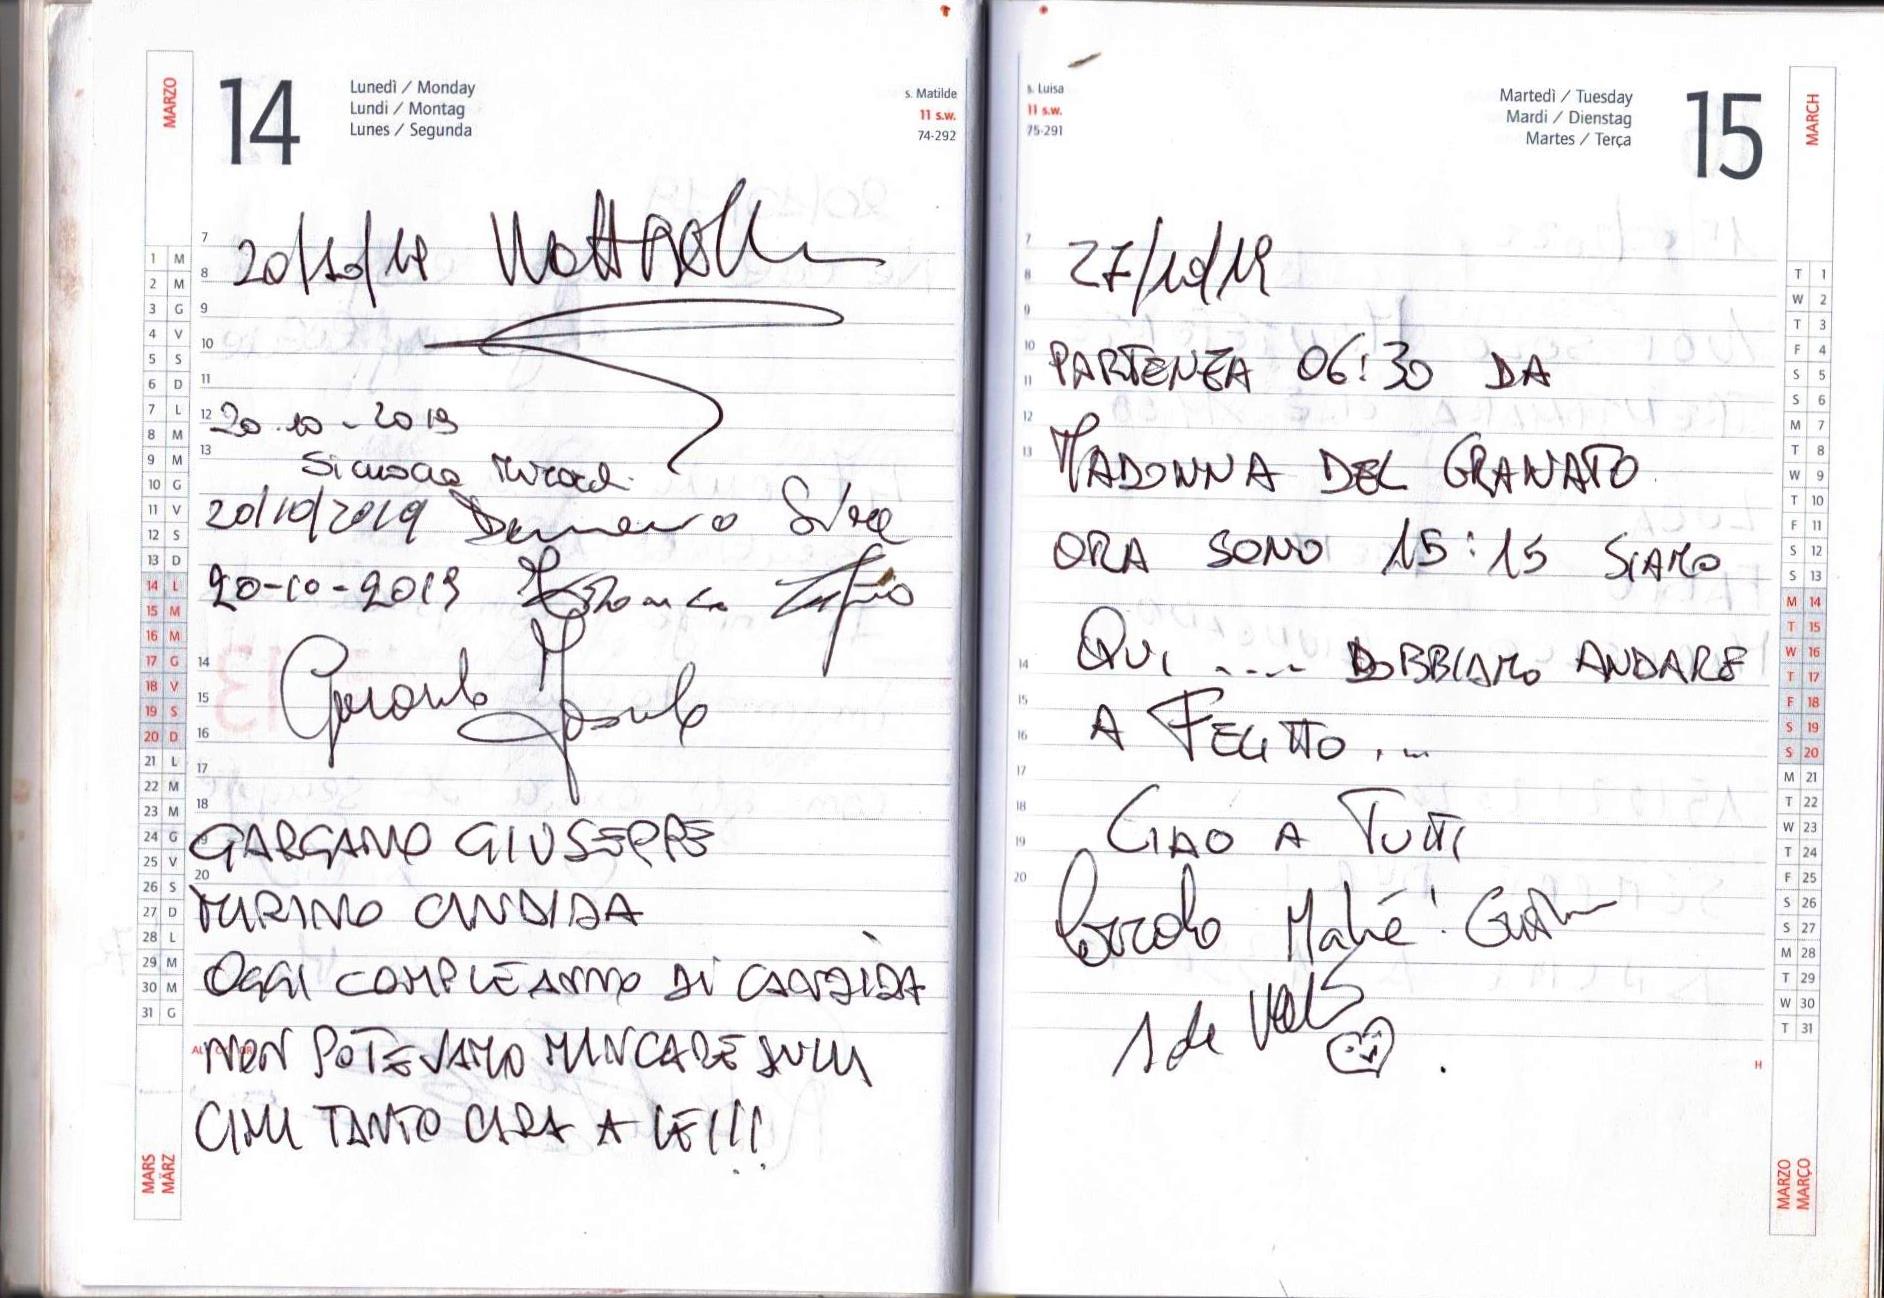 MARZO
14
Lunedì / Monday
Lundi / Montag
Lunes / Segunda
s. Matilde
11 s.w.
74-292
20/10/19
20.10-2019
20/10/2019
20-10-2019
GARGANO GIUSEPPE
MURINO CANDIDA
OGGI COMPLEANNO DI CANDIDA
NON POTEVAMO MANCARE SULLA
CIMA TANTO CARA A LEI!!!
7
8
9
10
11
12
13
14
15
16
17
18
19
20
1 M
2 M
3 G
4 V
5 S
6 D
7 L
8 M
9 M
10 G
11 V
12 S
13 D
14 L
15 M
16 M
17 G
18 V
19 S
20 D
21 L
22 M
23 M
24 G
25 V
26 S
27 D
28 L
29 M
30 M
31 G
MARS
MÄRZ
s. Luisa
11 s.w.
75-291
Martedì / Tuesday
Mardi / Dienstag
Martes / Terça
15
MARCH
27/10/19
PARTENZA 06:30 DA
MADONNA DEL GRANATO
ORA SONO 15:15 SIAMO
QUI .... DOBBIAMO ANDARE
A FELITTO...
CIAO A TUTTI
7
8
9
10
11
12
13
14
15
16
17
18
19
20
T 1
W 2
T 3
F 4
S 5
S 6
M 7
T 8
W 9
T 10
F 11
S 12
S 13
M 14
T 15
W 16
T 17
F 18
S 19
S 20
M 21
T 22
W 23
T 24
F 25
S 26
S 27
M 28
T 29
W 30
T 31
H
MARZO
MARÇO